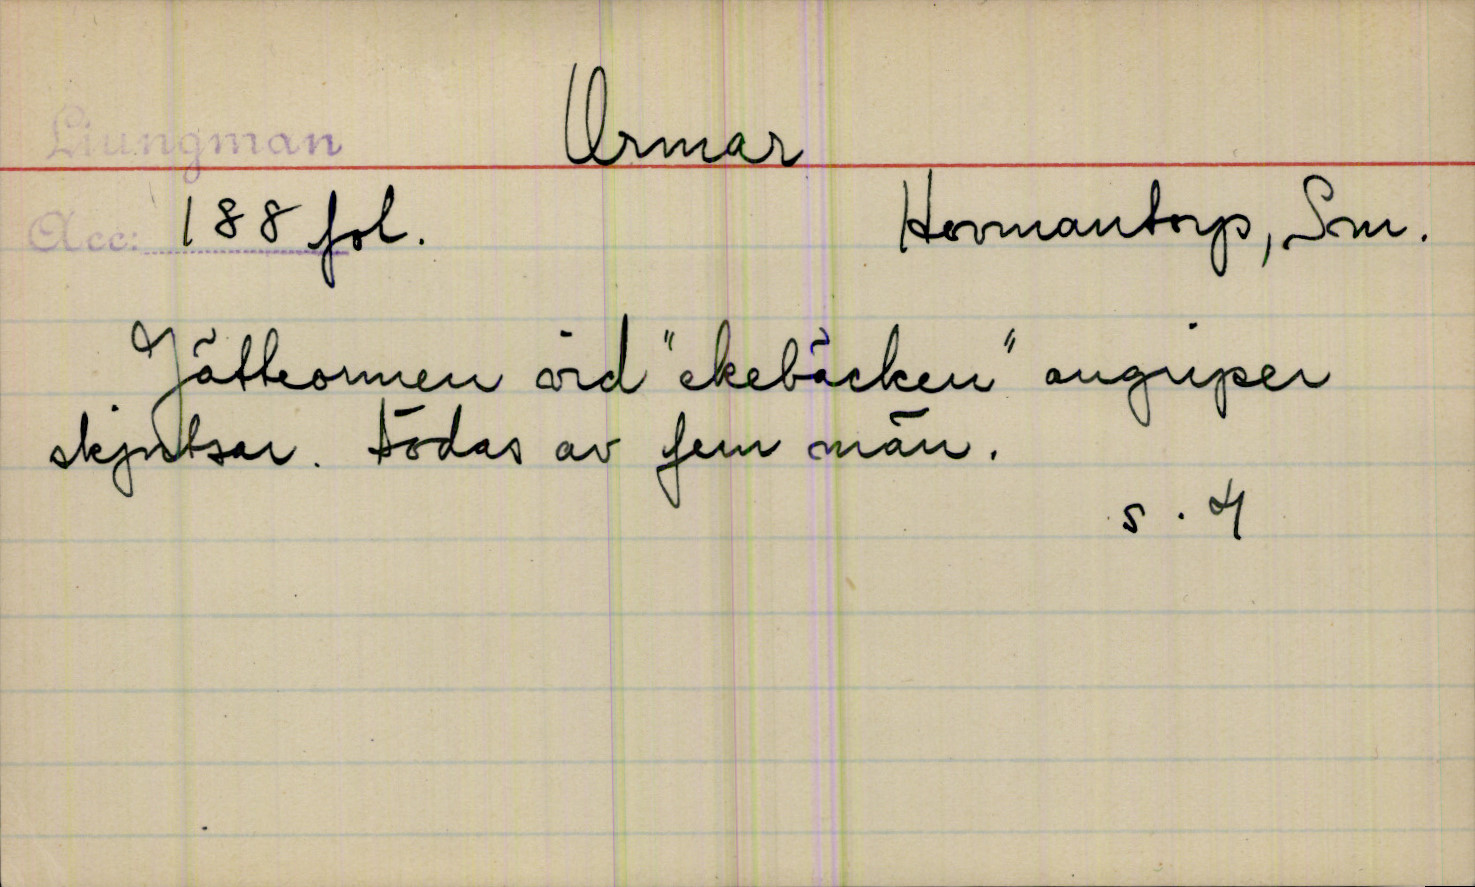 Liungman
Ormar
Acc: 188 fol.
Hovmantorp, Sm.
Jätteormen vid "ekebäcken" angriper
skjutsar. Dödas av fem män.
s. 4